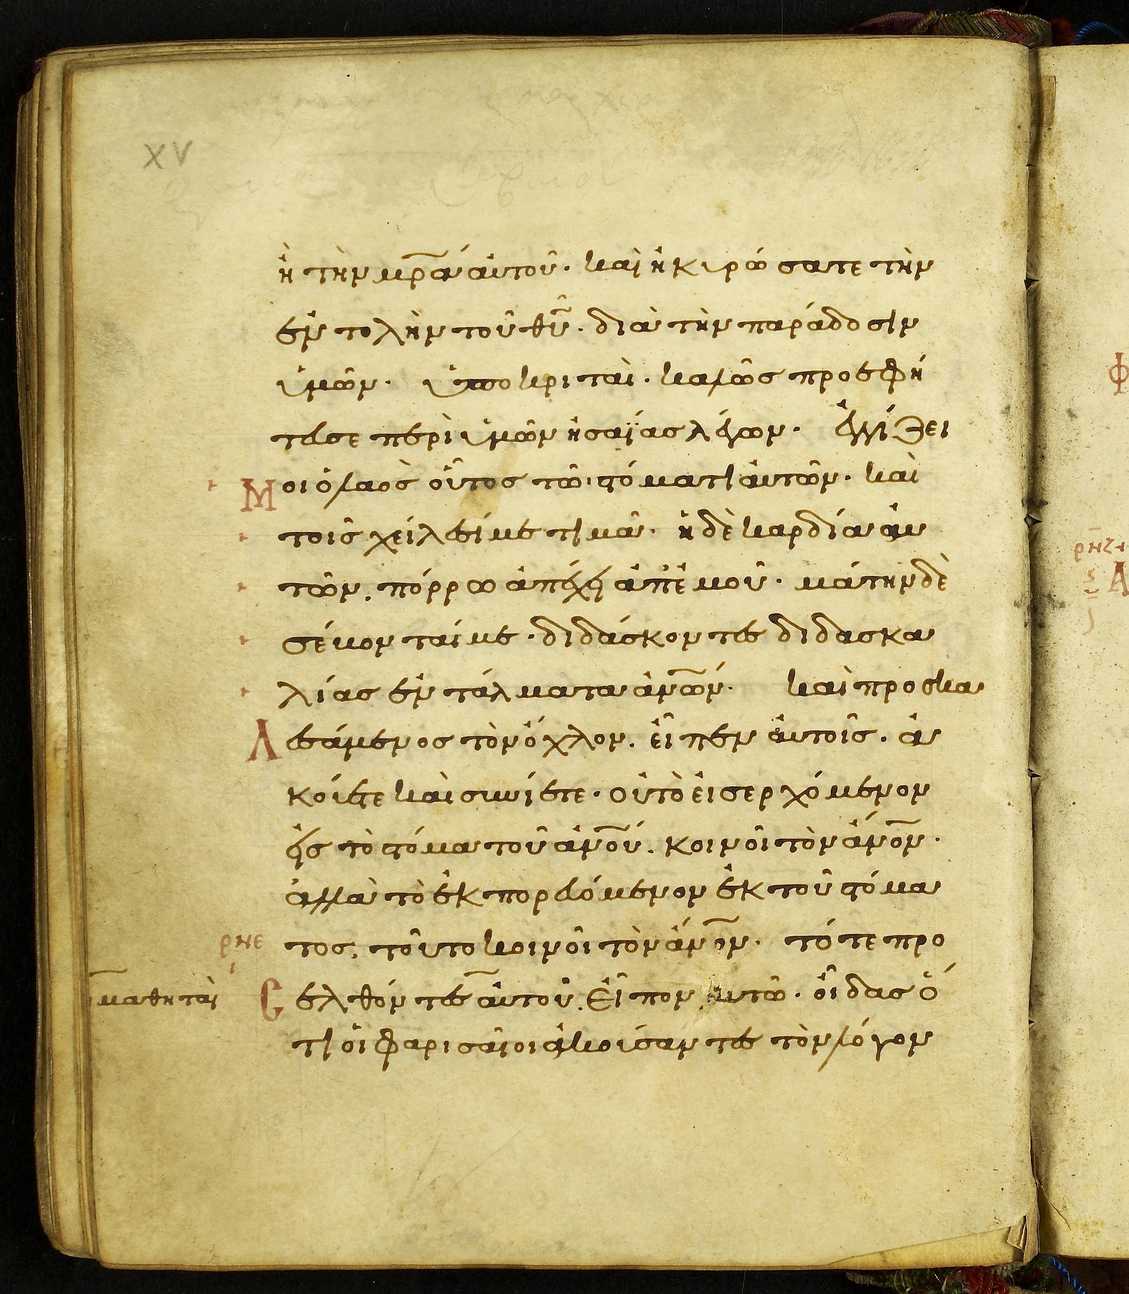 XV
ἢ τὴν μρ̅α αὐτοῦ· καὶ ἠκυρώσατε τὴν
ἐντολὴν τοῦ θυ̅· διὰ τὴν παράδοσιν
ὑμῶν· ὑποκριταὶ· καλῶς προεφή
τευσε περὶ ὑμῶν ἠσαΐας λέγων· ἐγγίζει
μοι ὁ λαὸς οὗτος τῶ στόματι αὐτῶν· καὶ
τοῖς χείλεσί με τιμᾶ· ἡ δὲ καρδία αὐ
τῶν, πόρρω ἀπέχει ἀπ' ἐμοῦ· μάτην δὲ
σέβονταί με· διδάσκοντες διδασκα
λίας ἐντάλματα ἀνω̅ν· καὶ προσκα
λεσάμενος τὸν ὄχλον. εἶπεν αὐτοῖς· ἀ
κούετε καὶ συνίετε· οὐ τὸ εἰσερχόμενον
εἰς τὸ στόμα τοῦ ἀνο̅υ. κοινοῖ τὸν ἄνο̅ν·
ἀλλὰ τὸ ἐκπορευόμενον ἐκ τοῦ στόμα
ρνε τος, τοῦτο κοινοῖ τὸν ἄνο̅ν· τότε προ
μαθηταὶ σελθόντες αὐτοῦ. εἶπον αὐτῶ· οἶδας ὅ
τι οἱ φαρισαῖοι ἀκούσαντες τὸν λόγον